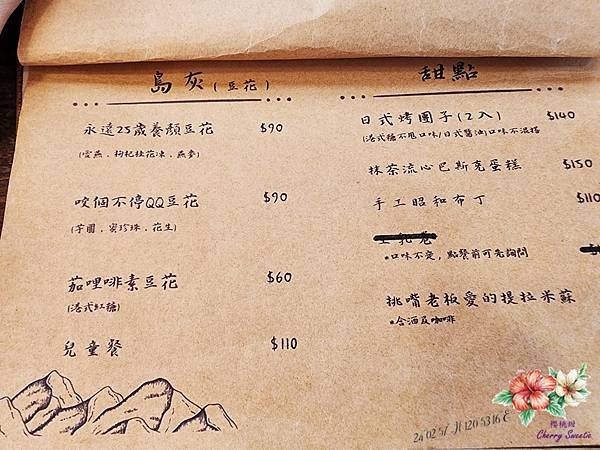 島灰(豆花)
永遠25歲養顏豆花 $90
(雪燕．枸杞桂花凍．燕麥)
咬個不停QQ豆花 $90
(芋圓．蜜珍珠．花生)
茄哩啡素豆花 $60
(港式紅糖)
兒童餐 $110
甜點
日式烤團子(2入) $140
(港式糖不甩口味/日式醬油)口味不混搭
抹茶流心巴斯克蛋糕 $150
手工昭和布丁 $110
生乳卷
※口味不定，點餐前可先詢問
挑嘴老板愛的提拉米蘇
※含酒及咖啡
櫻桃甜
Cherry Sweetie